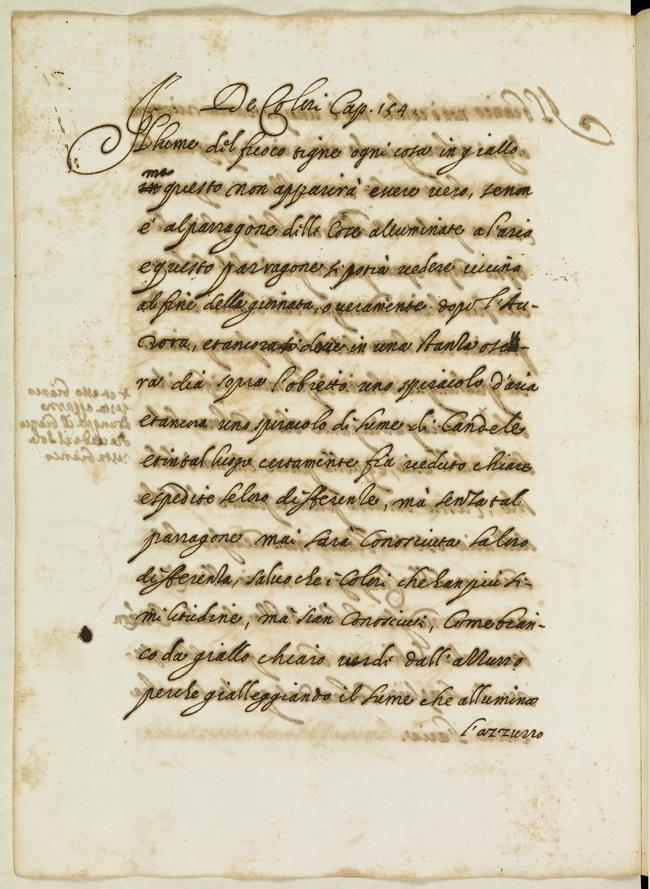 De Colori Cap. 154.
Il lume del fuoco tigne ogni cosa in giallo
ma
questo non apparirà essere vero, se non
e' al parragone delle Cose alluminate a l'aria
e questo parragone si potrà vedere vicino
al fine della giornata, o veramente dopo l'Au-
rora, et ancora doue in una stanza oscu-
ra dia sopra l'obietto uno spiracolo d'aria
et ancora uno spiracolo di lume di Candele
et in tal luogo certamente fia veduto chiare
e spedite le loro differenze, mà senza tal
parragone mai sarà Conosciuta la loro
differenza, saluo che i Colori che han più si-
militudine, mà sian Conosciuti, Come bian-
co da giallo chiaro verde dall'azzurro
perche gialleggiando il lume che allumina
l'azzurro